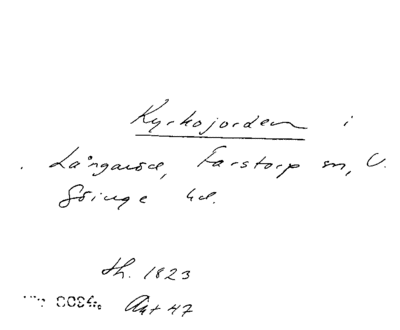 Kyrkojorden i
Långaröd, Farstorp sn, V.
Göinge hd.
th. 1823
0094. Akt 47